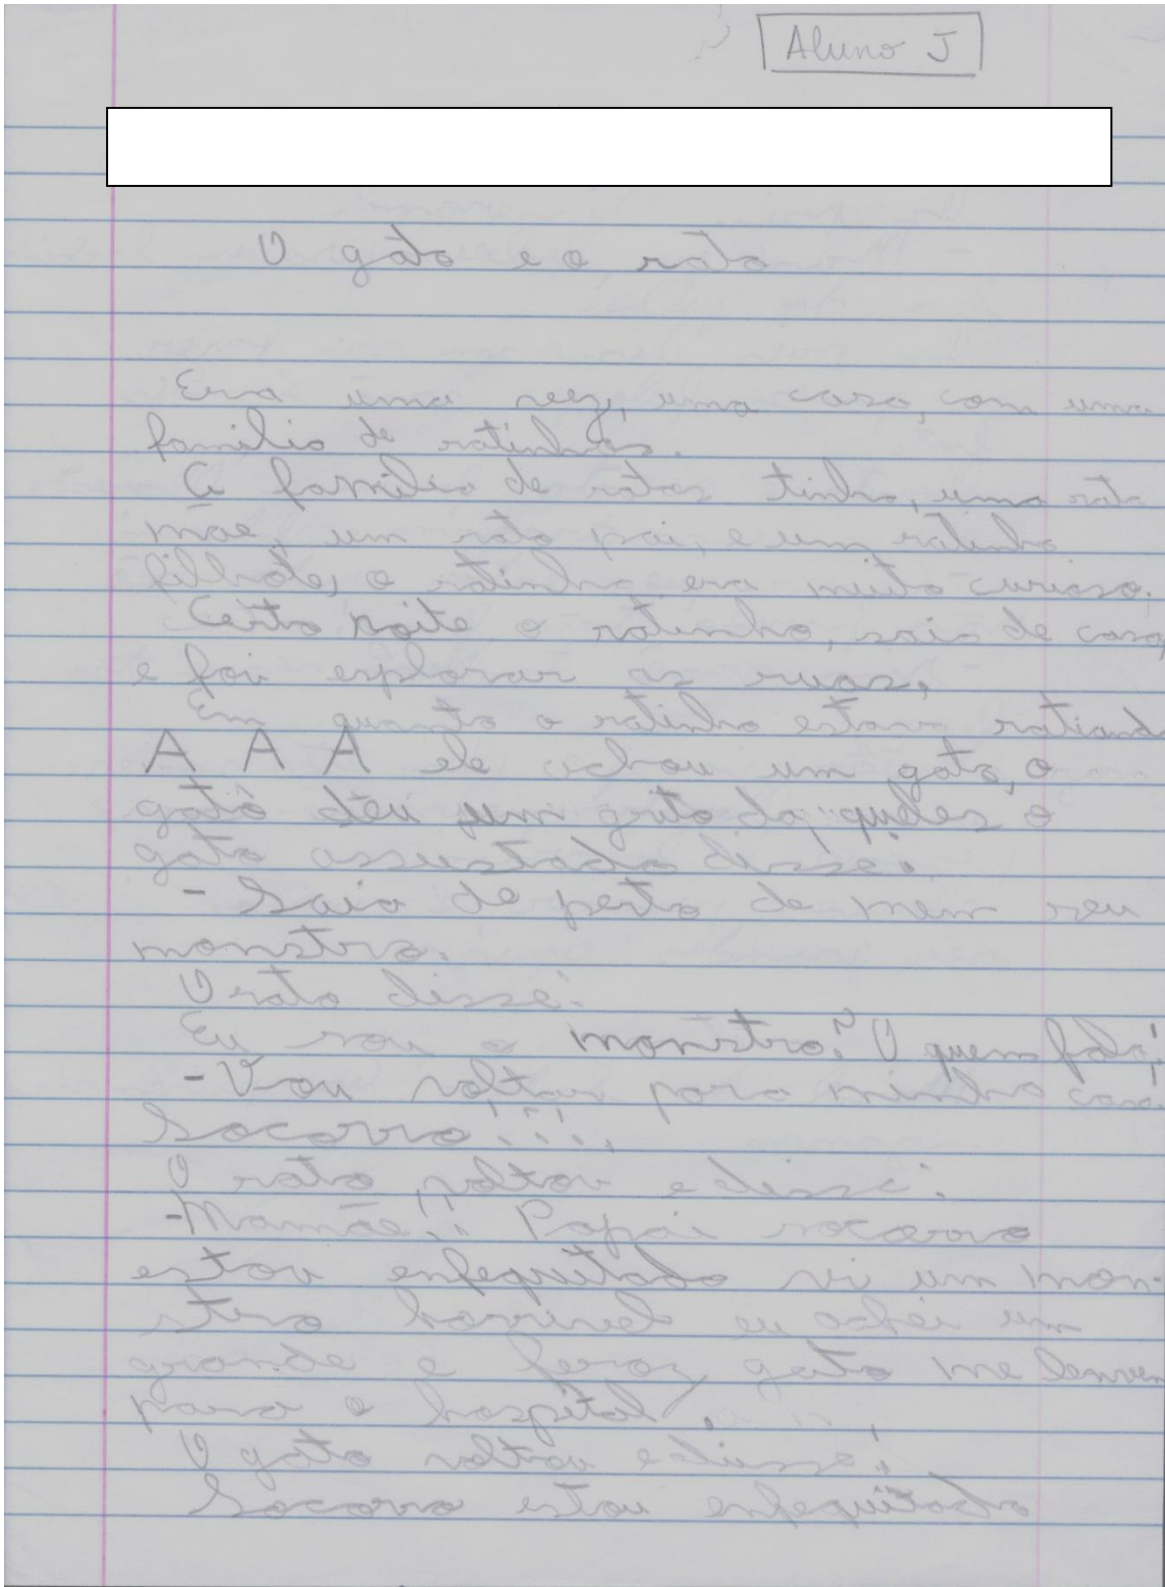 Aluno J
O gato e o rato
Era uma vez, uma casa, com uma
familia de ratinhos.
A familia de ratos tinha, uma rata
mãe, um rato pai, e um ratinho
filhote, o ratinho era muito curioso.
Certa noite o ratinho, saio de casa,
e foi explorar as ruas,
Em quanto o ratinho estava ratiand
A A A ele achou um gato, o
gato deu um grito da queles o
gato assustado disse:
- Saia de perto de mem seu
monstro.
O rato disse:
Eu sou o monstro? O quem fala!
- Vou voltar para minha casa
Socorro!!!!
O rato voltou e disse:
- Mamãe!! Papai socorro
estou enfequitado vi um mon-
stro horrivel eu achei um
grande e feroz gato me levem
para o hospital.
O gato voltou e disse:
Socorro estou enfequitado